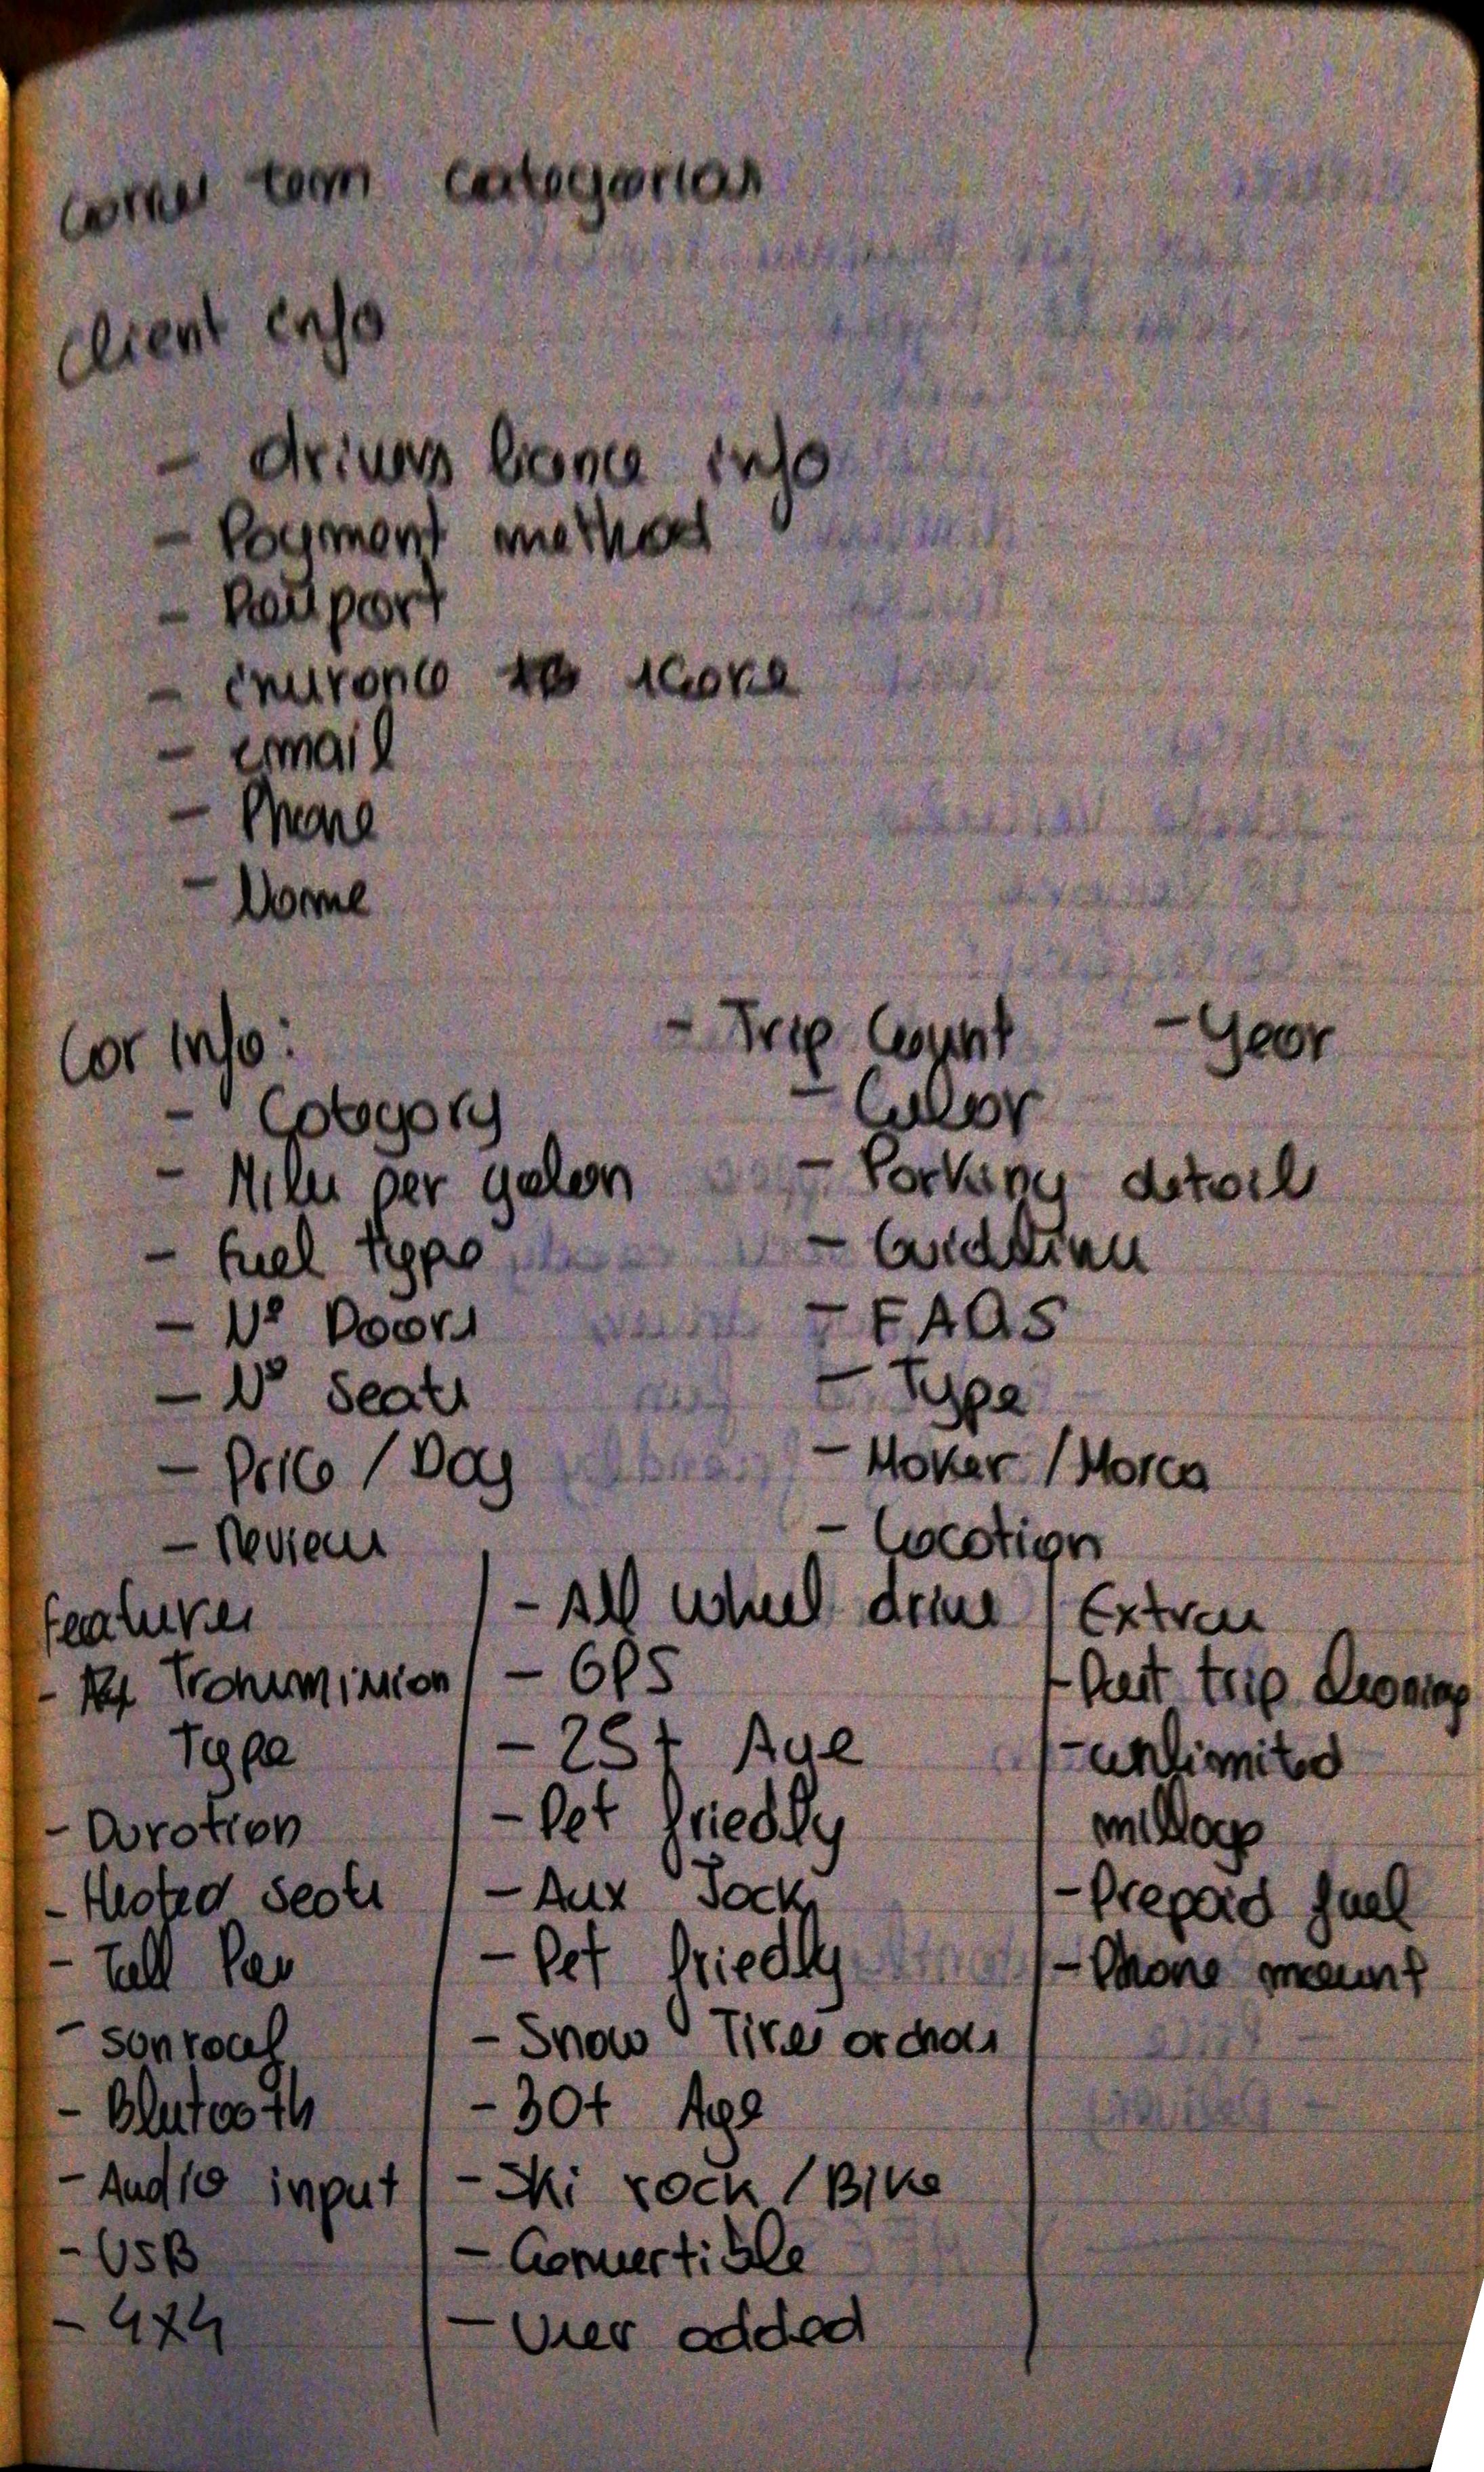 carros tem categorias
Client info
- drivers licence info
- Payment method
- Passport
- insurance score
- email
- Phone
- Name
Car info:
- Category
- Miles per galon
- Fuel type
- Nº Doors
- Nº Seats
- Price / Day
- Reviews
- Trip Count
- Year
- Color
- Parking details
- Guidelines
- FAQS
- Type
- Maker / Marca
- Location
Features
- Transmission
Type
- Duration
- Heated seats
- Toll Pass
- sonroof
- Blutooth
- Audio input
- USB
- 4x4
- All wheel drive
- GPS
- 25+ Age
- Pet friedly
- Aux Jack
- Pet friedly
- Snow Tires or chais
- 30+ Age
- Ski rack / Bike
- Convertible
- User added
Extras
- Post trip cleaning
- unlimited
millage
- Prepaid fuel
- Phone mount